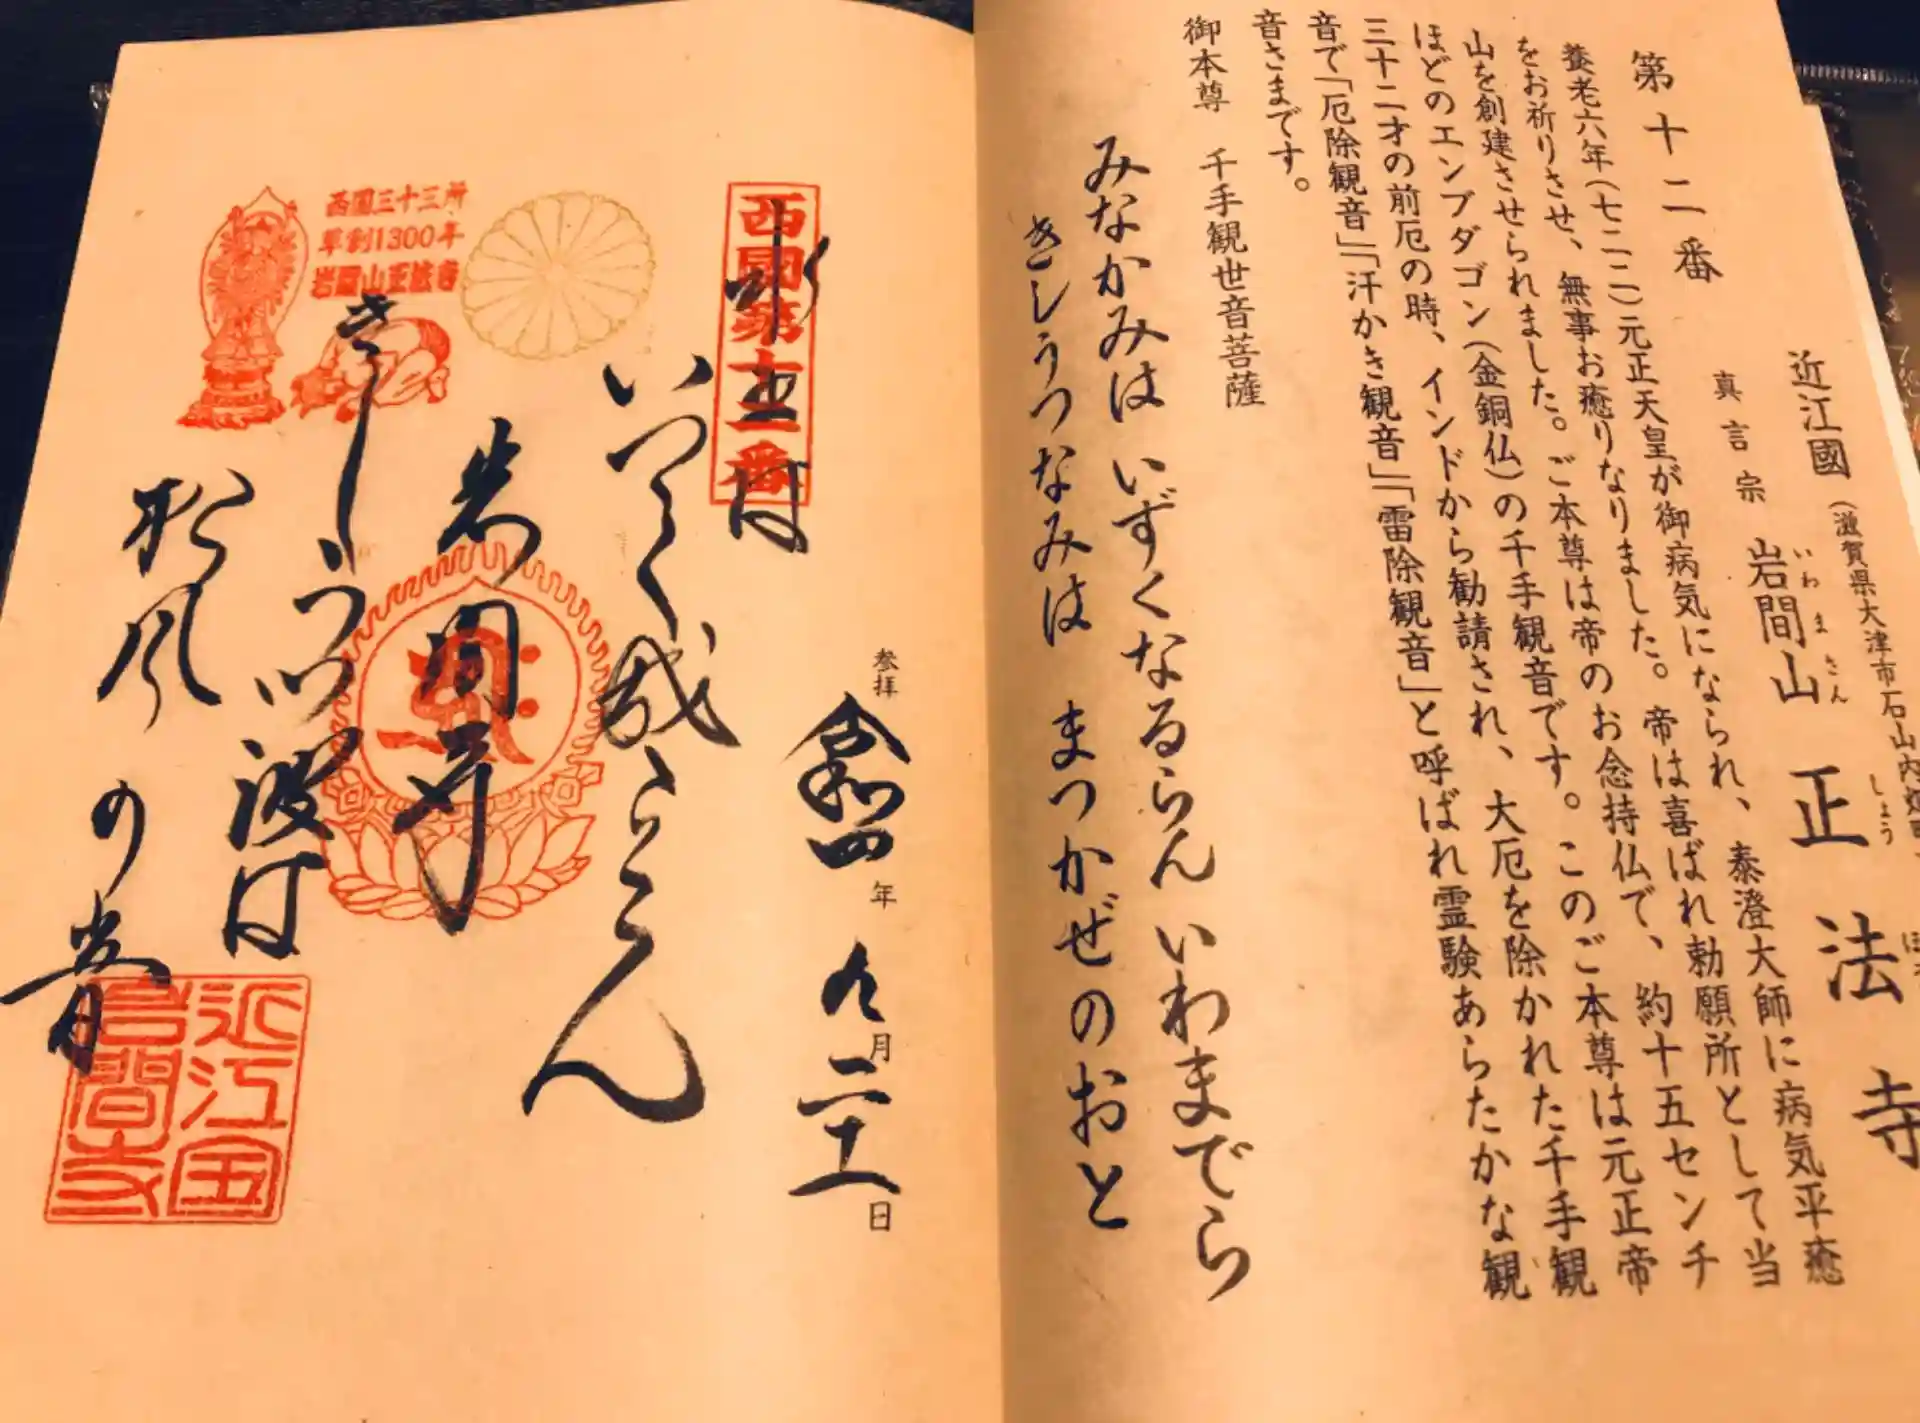 近江國（滋賀県大津市石山内畑町
第十二番
真言宗 岩間山正法寺
いわまさん しょう
養老六年（七二二）元正天皇が御病気になられ、泰澄大師に病気平癒
をお祈りさせ、無事お癒りなりました。帝は喜ばれ勅願所として当
山を創建させられました。ご本尊は帝のお念持仏で、約十五センチ
ほどのエンブダゴン（金銅仏）の千手観音です。このご本尊は元正帝
三十二才の前厄の時、インドから勧請され、大厄を除かれた千手観
音で「厄除観音」「汗かき観音」「雷除観音」と呼ばれ霊験あらたかな観
音さまです。
御本尊 千手観世音菩薩
みなかみは いずくなるらん いわまでら
きしうつなみは まつかぜのおと
参拝 令和四年九月二十一日
西國第十二番
水上は
いつく成らん
岩間寺
きしうつ波は
松風の音
西国三十三所
草創1300年
岩間山正法寺
近江国
岩間寺